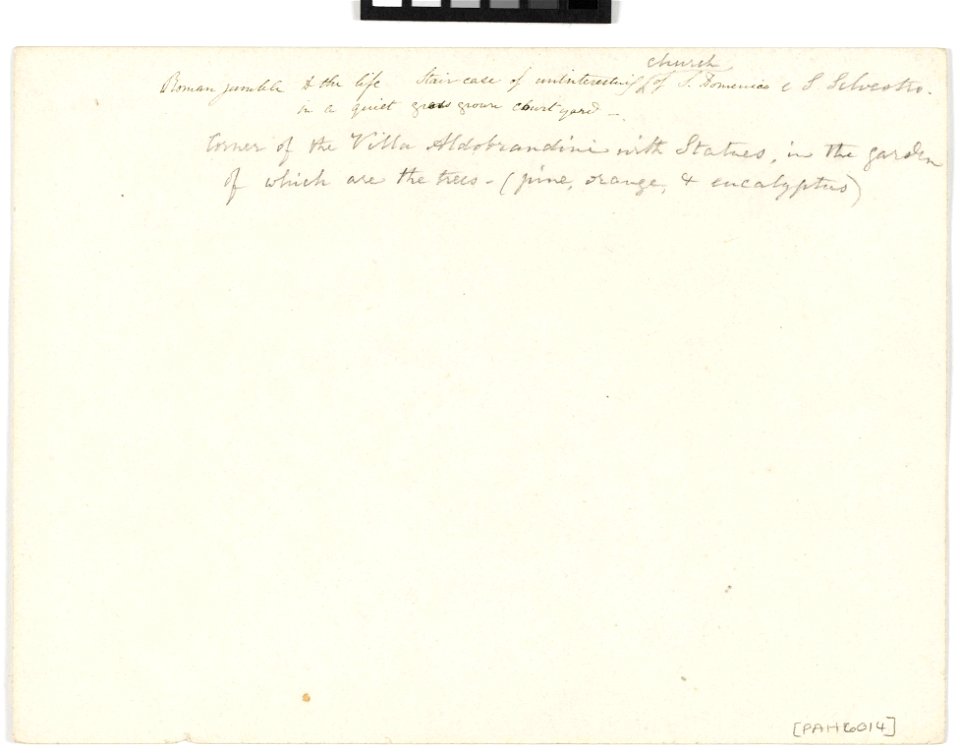 church
Roman jumble to the life Staircase of uninteresting of S. Domenico e S Silvestro.
in a quiet grass grown court yard -.
Corner of the Villa Aldobrandini with Statues, in the garden
of which are the trees - (pine, orange, & eucalyptus)
[PAH6014]